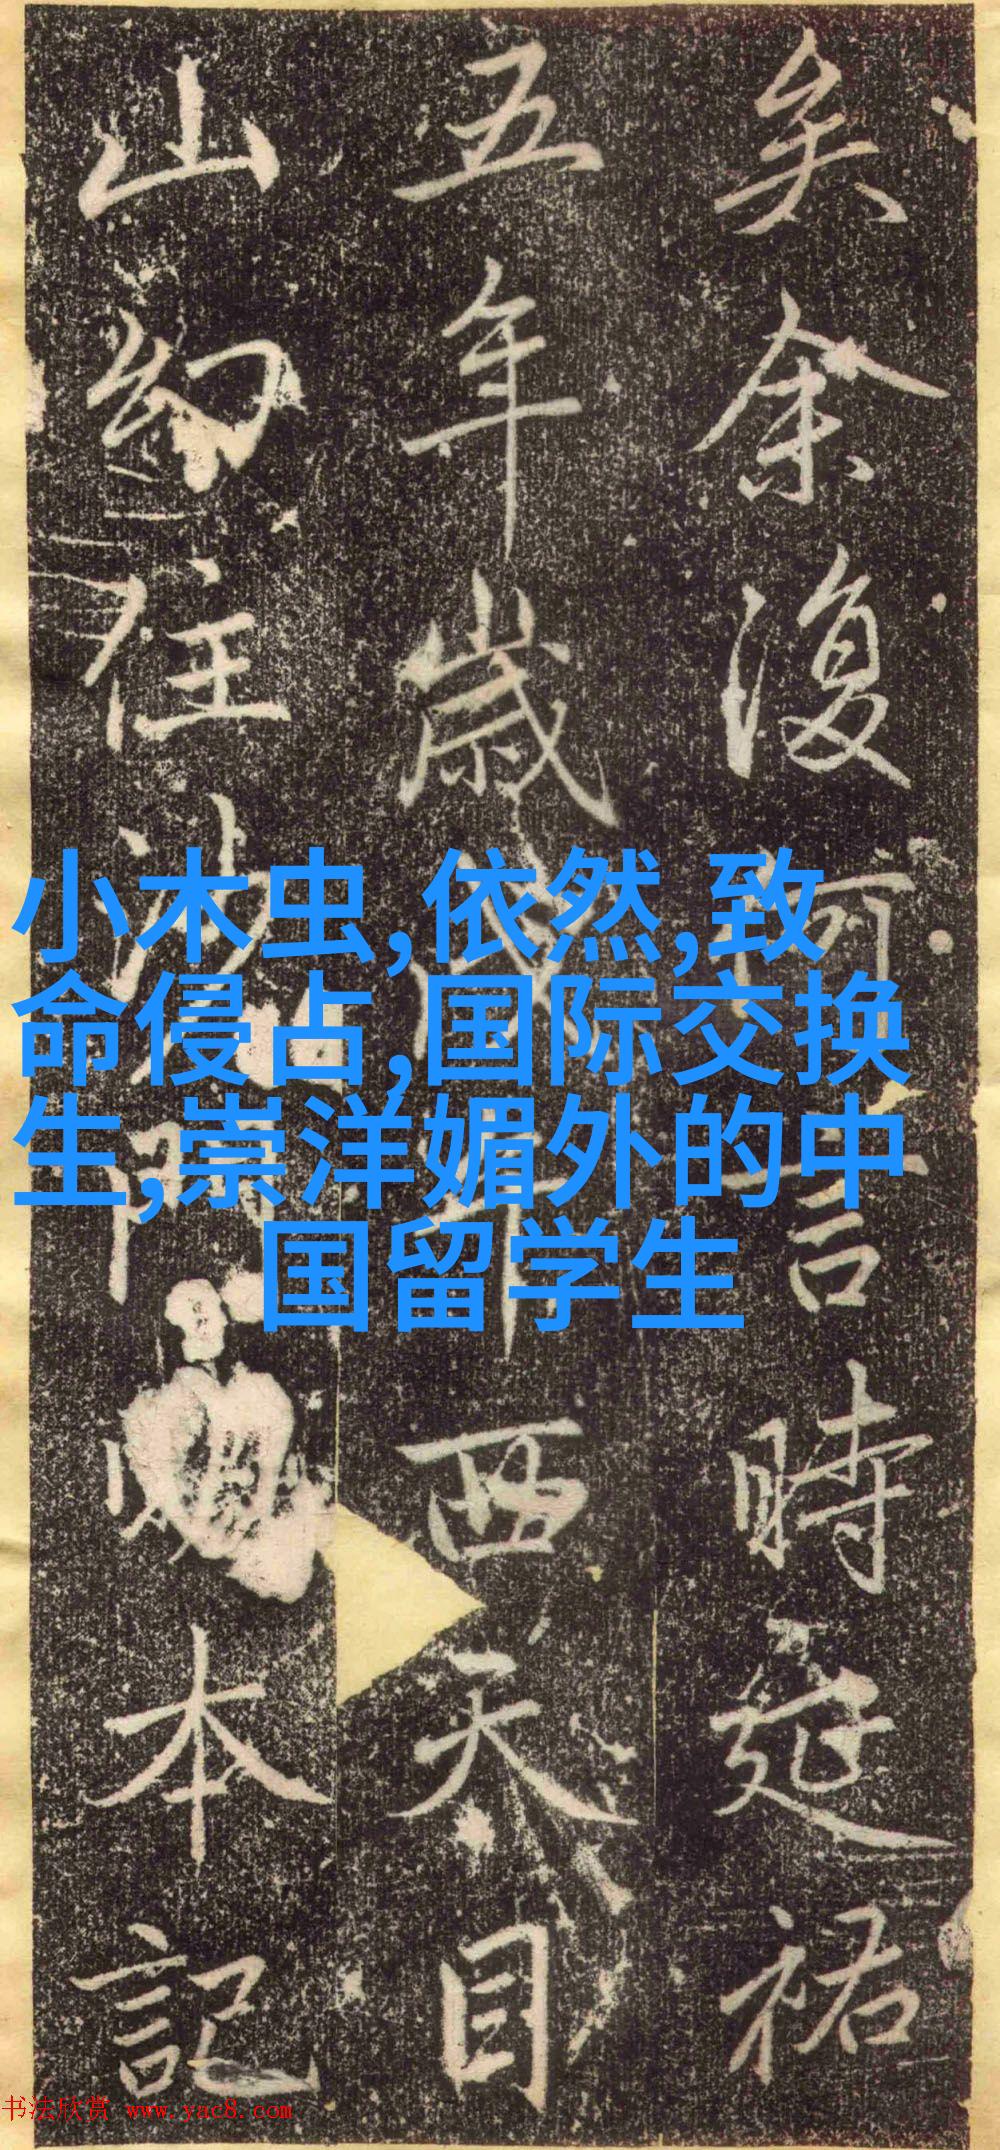 矣余復何言時延祐
五年歲戊午西天目
山幻住沙門明本記
小木虫,依然,致
命侵占,国际交换
生,崇洋媚外的中
国留学生
书法欣赏 www.yac8.com